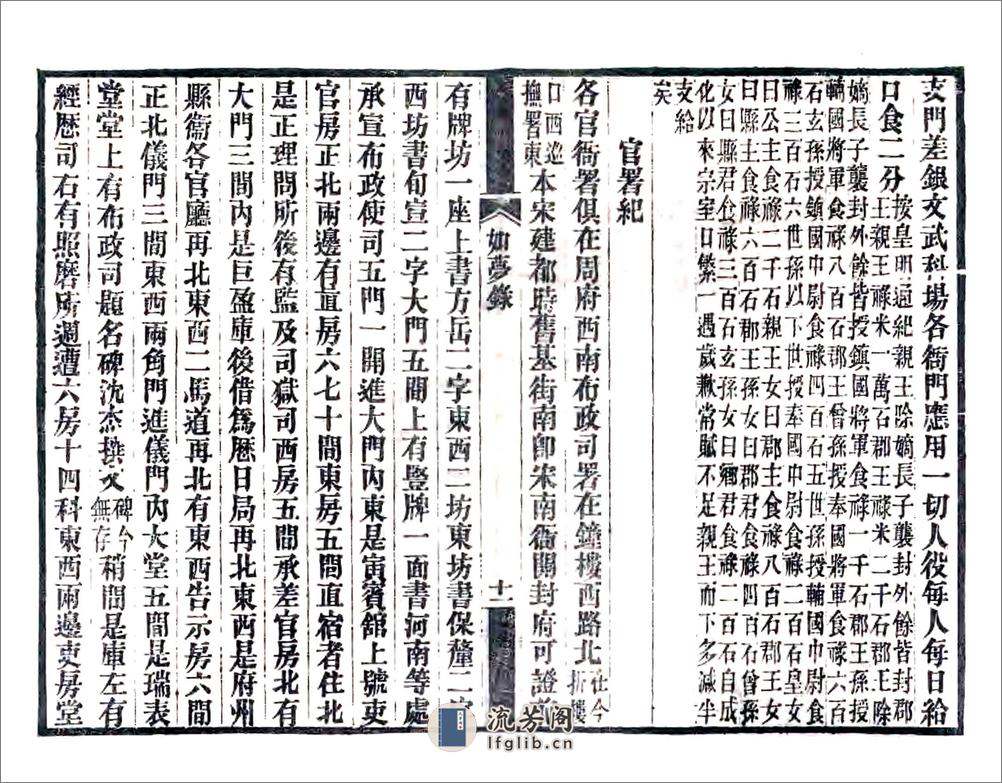 支門差銀文武科場各衙門應用一切人役每人每日給
口食二分按皇明通紀親王除嫡長子襲封外餘皆封郡
王親王祿米一萬石郡王祿米二千石郡王除
嫡長子襲封外餘皆授鎮國將軍食祿一千石郡王孫授
輔國將軍食祿八百石郡王曾孫授奉國將軍食祿六百
石玄孫授鎮國中尉食祿四百石五世孫授輔國中尉食
祿三百石六世孫以下世授奉國中尉食祿二百石皇女
曰公主食祿二千石親王女曰郡主食祿八百石郡王女
曰縣主食祿六百石孫女曰郡君食祿四百石曾孫
女曰縣君食祿三百石玄孫女曰鄉君食祿二百石自成
化以來宗室日繁一遇歲歉常賦不足親王而下多減半
支給
矣
官署紀
各官衙署俱在周府西南布政司署在鐘樓西路北在今折樓
口西巡撫署東本宋建都時舊基街南即宋南衙開封府可證
有牌坊一座上書方岳二字東西二坊東坊書保釐二
西坊書旬宣二字大門五間上有豎牌一面書河南等處
承宣布政使司五門一開進大門內東是寅賓館上號吏
官房正北兩邊有直房六七十間東房五間直宿者住北
是正理問所後有監及司獄司西房五間承差官房北有
大門三間內是巨盈庫後借爲歷日局再北東西是府州
縣衛各官廳再北東西二馬道再北有東西告示房六間
正北儀門三間東西兩角門進儀門內大堂五間是瑞表
堂堂上有布政司題名碑沈杰撰文碑今無存稍間是庫左有
經歷司右有照磨所週遭六房十四科東西兩邊吏房堂
如夢錄
十一
流芳阁
lfglib.cn